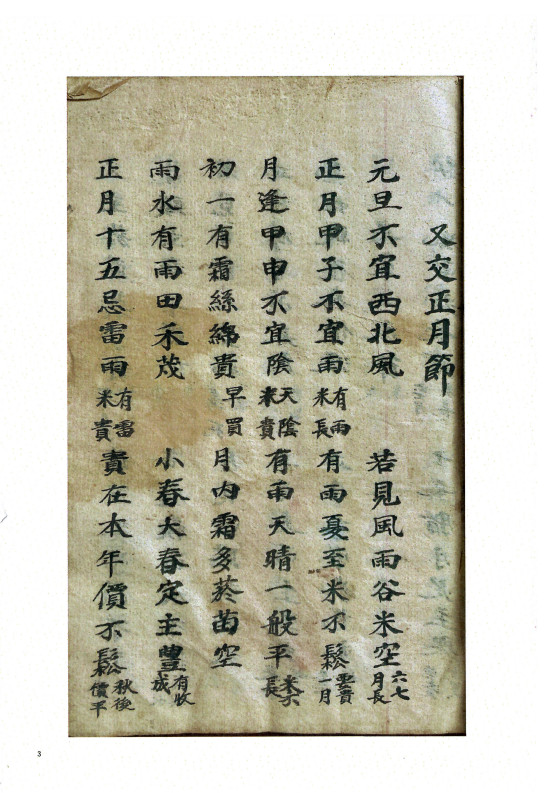 又交正月節
元旦不宜西北風 若見風雨谷米空 六七月長
正月甲子不宜雨 有雨米長 有雨夏至米不鬆 要貴一月
月逢甲申不宜陰 天陰米貴 有雨天晴一般平 米長
初一有霜絲綿貴 早買 月內霜多菸苗空
雨水有雨田禾茂 小春大春定主豐 有收成
正月十五忌雷雨 有雷米貴 貴在本年價不鬆 秋後價平
3